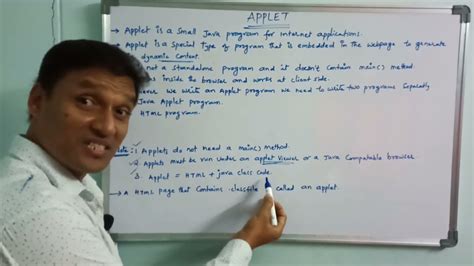 APPLET
→ Applet is a small Java program for Internet applications.
→ Applet is a special type of program that is embedded in the webpage to generate
dynamic content.
not a standalone program and it doesn't contain main() method
inside the browser and works at client side.
we write an Applet program we need to write two programs separately
Java Applet program.
HTML program.
Note: 1. Applets do not need a main() method.
2. Applets must be run under an applet viewer or a Java Compatable browser
3. Applet = HTML + java class code.
→ A HTML page that contains .classfile called an applet.